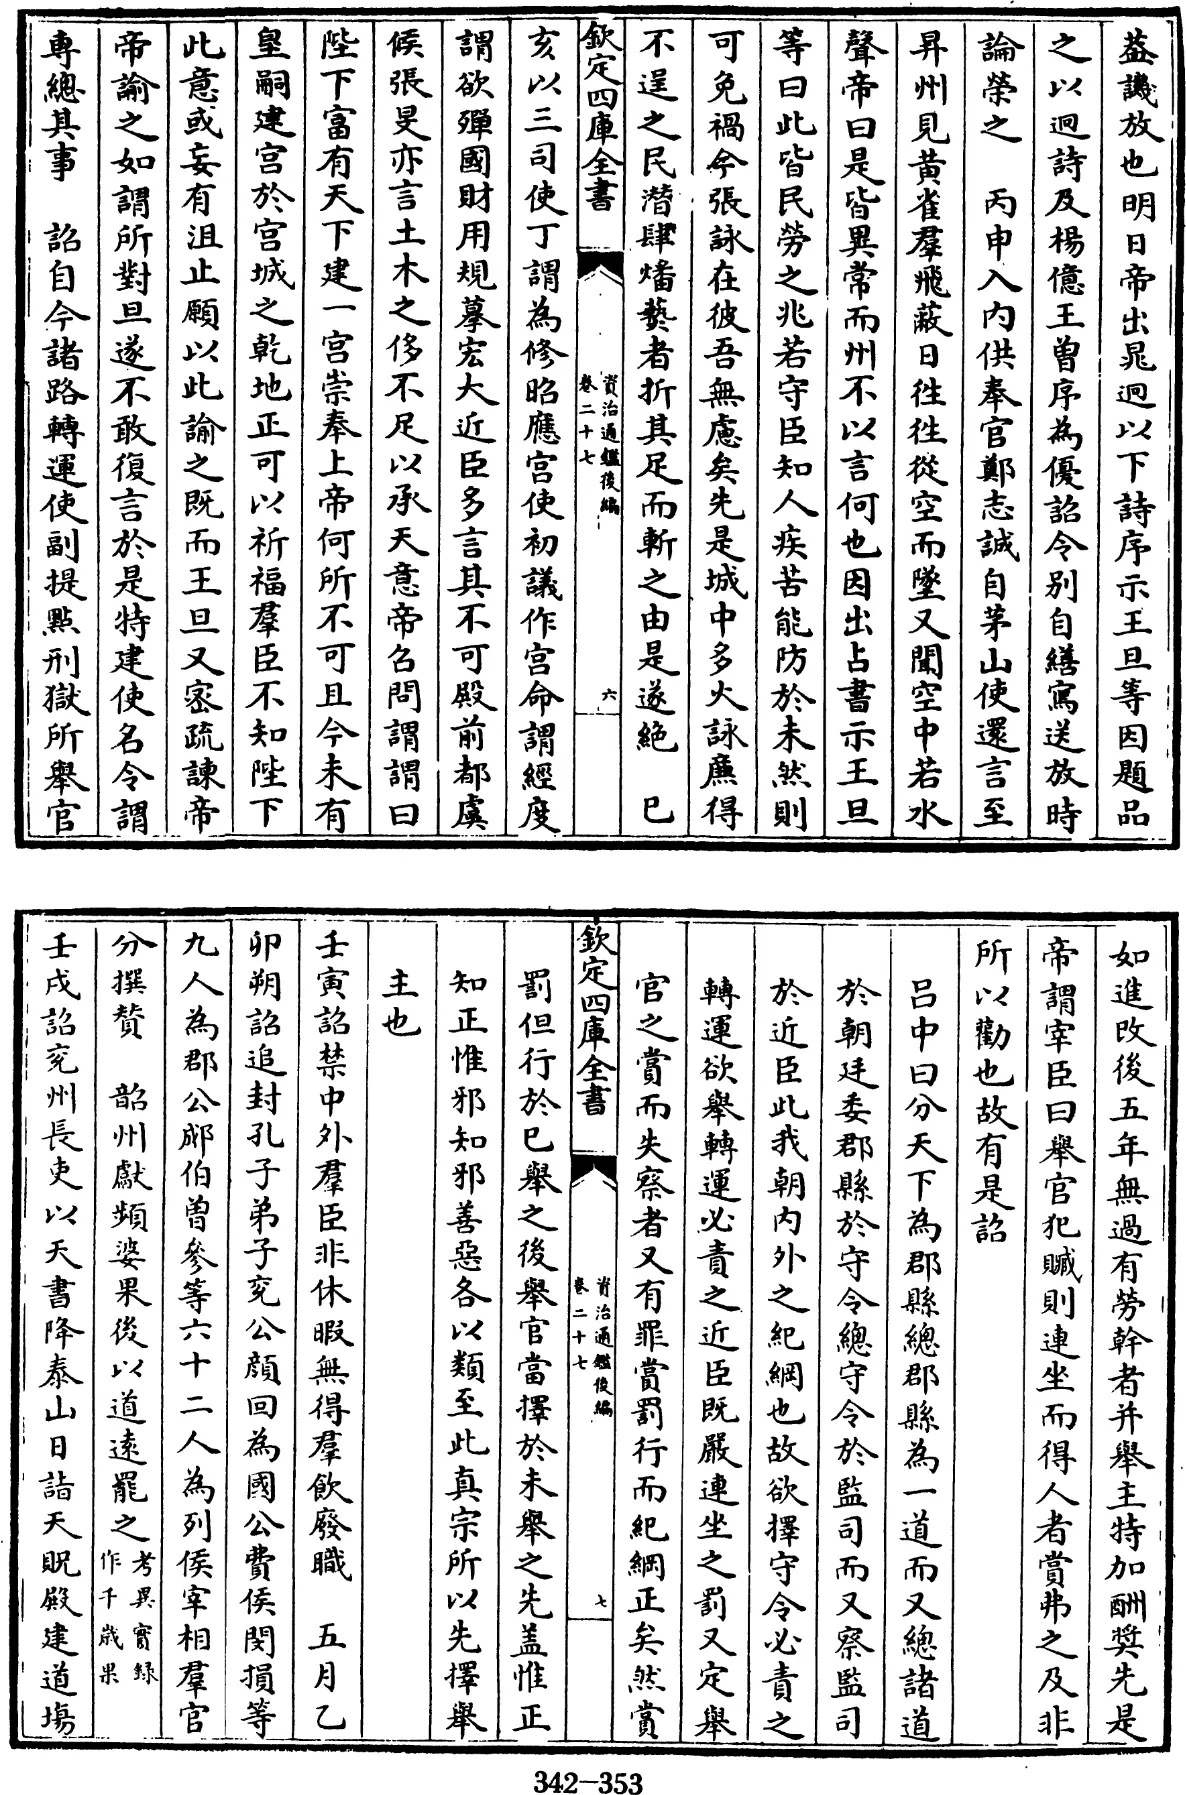 葢譏放也明日帝出晁迥以下詩序示王旦等因題品
之以迥詩及楊億王曽序為優詔令别自繕寫送放時
論榮之　丙申入内供奉官鄭志誠自茅山使還言至
昇州見黄雀羣飛蔽日往往從空而墜又聞空中若水
聲帝曰是皆異常而州不以言何也因出占書示王旦
等曰此皆民勞之兆若守臣知人疾苦能防於未然則
可免禍今張詠在彼吾無慮矣先是城中多火詠廉得
不逞之民潛肆燔爇者折其足而斬之由是遂絶　已
欽定四庫全書
資治通鑑後編
卷二十七
六
亥以三司使丁謂為修昭應宫使初議作宫命謂經度
謂欲殫國財用規摹宏大近臣多言其不可殿前都虞
候張旻亦言土木之侈不足以承天意帝召問謂謂曰
陛下富有天下建一宫崇奉上帝何所不可且今未有
皇嗣建宫於宫城之乾地正可以祈福羣臣不知陛下
此意或妄有沮止願以此諭之既而王旦又宻疏諫帝
帝諭之如謂所對旦遂不敢復言於是特建使名令謂
專總其事　詔自今諸路轉運使副提㸃刑獄所舉官
如進改後五年無過有勞幹者并舉主特加酬奬先是
帝謂宰臣曰舉官犯贓則連坐而得人者賞弗之及非
所以勸也故有是詔
吕中曰分天下為郡縣總郡縣為一道而又總諸道
於朝廷委郡縣於守令總守令於監司而又察監司
於近臣此我朝内外之紀綱也故欲擇守令必責之
轉運欲舉轉運必責之近臣既嚴連坐之罰又定舉
官之賞而失察者又有罪賞罰行而紀綱正矣然賞
欽定四庫全書
資治通鑑後編
卷二十七
七
罰但行於已舉之後舉官當擇於未舉之先盖惟正
知正惟邪知邪善惡各以類至此真宗所以先擇舉
主也
壬寅詔禁中外羣臣非休暇無得羣飲廢職　五月乙
卯朔詔追封孔子弟子兖公顔回為國公費侯閔損等
九人為郡公郕伯曽參等六十二人為列侯宰相羣官
分撰贊　韶州獻頻婆果後以道逺罷之考異實録作千歲果
壬戌詔兖州長吏以天書降泰山日詣天貺殿建道塲
342-353